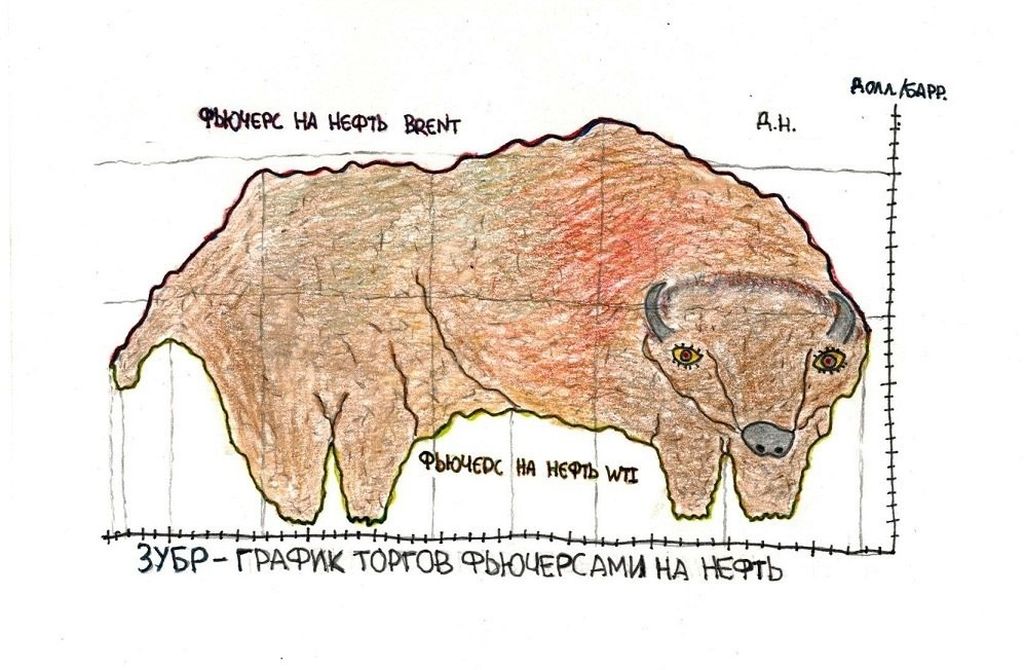 ДОЛЛ./БАРР.
ФЬЮЧЕРС НА НЕФТЬ BRENT
Д.Н.
ФЬЮЧЕРС НА НЕФТЬ WTI
ЗУБР - ГРАФИК ТОРГОВ ФЬЮЧЕРСАМИ НА НЕФТЬ